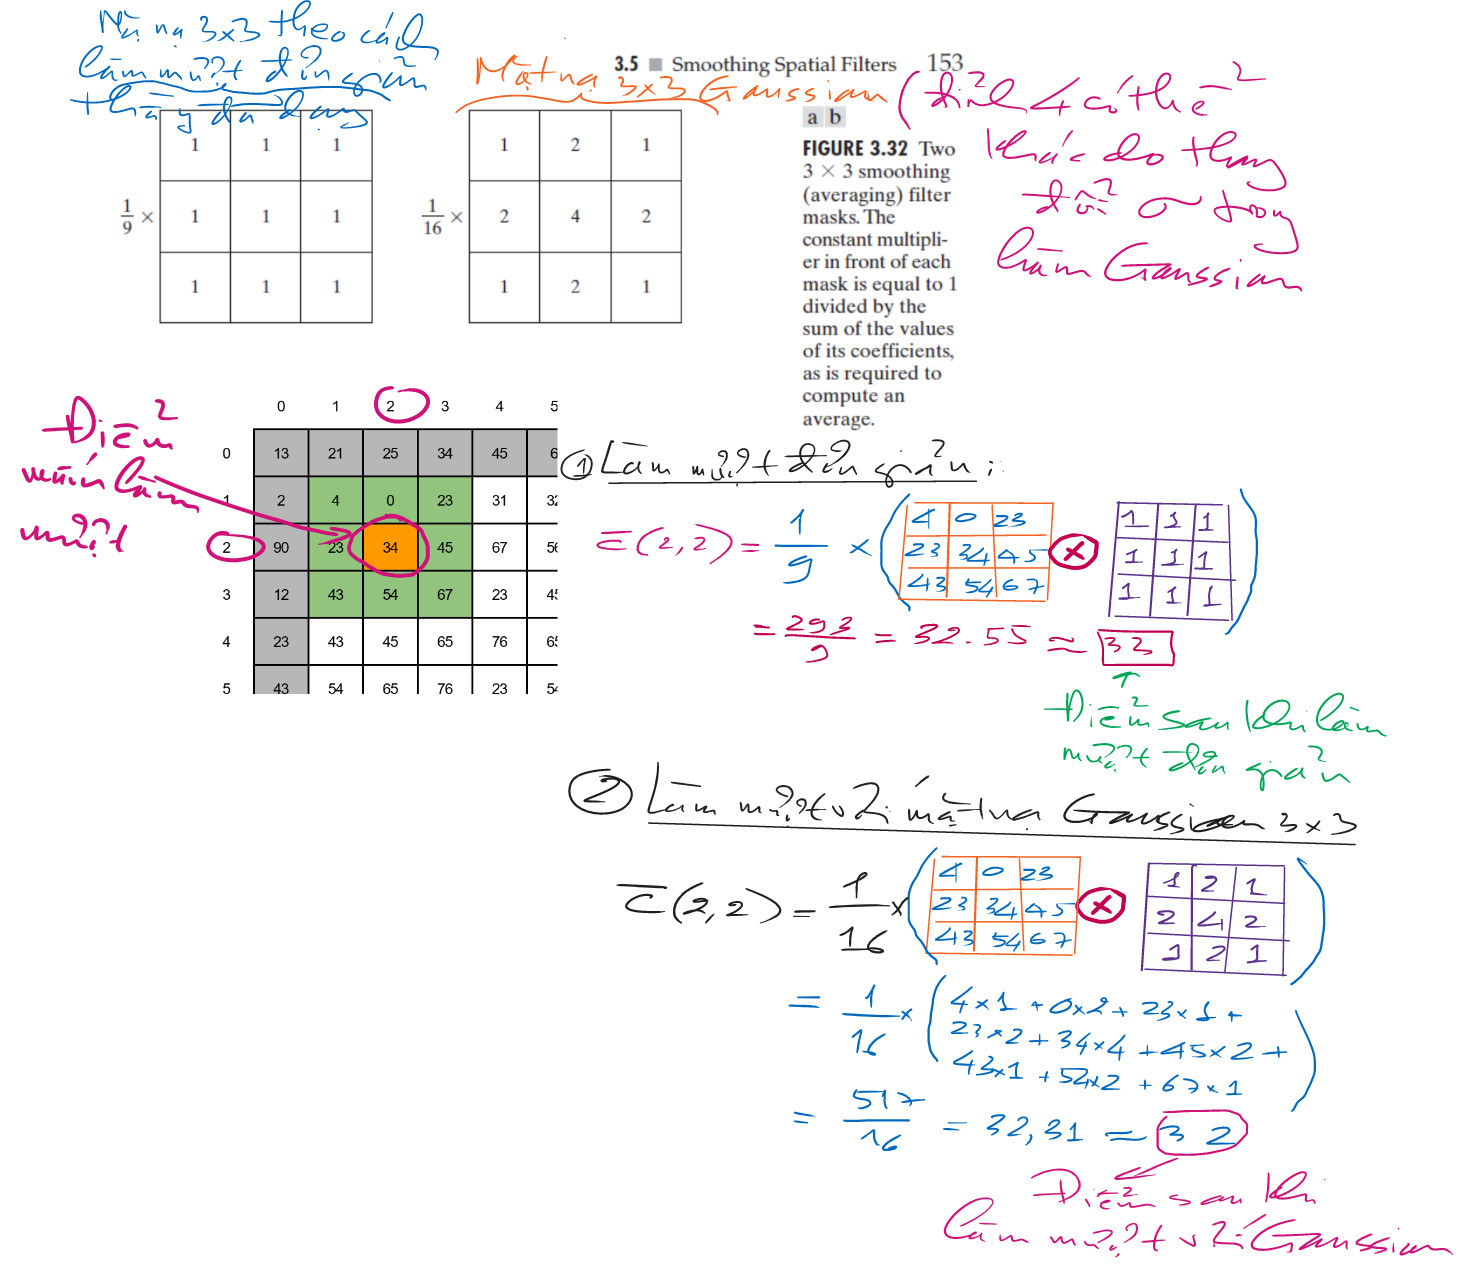 Mặt nạ 3x3 theo cách
làm mượt đơn giản
thầy đã dạy
3.5 ■ Smoothing Spatial Filters 153
Mặt nạ 3x3 Gaussian
(đỉnh 4 có thể
khác do thay
đổi σ trong
hàm Gaussian
1 1 1
1/9 × 1 1 1
1 1 1
1 2 1
1/16 × 2 4 2
1 2 1
a b
FIGURE 3.32 Two
3 × 3 smoothing
(averaging) filter
masks. The
constant multipli-
er in front of each
mask is equal to 1
divided by the
sum of the values
of its coefficients,
as is required to
compute an
average.
Điểm
muốn làm
mượt
0 1 2 3 4 5
0 13 21 25 34 45 6
1 2 4 0 23 31 32
2 90 23 34 45 67 56
3 12 43 54 67 23 45
4 23 43 45 65 76 65
5 43 54 65 76 23 54
① Làm mượt đơn giản:
c̅(2,2) = 1/9 × (
4 0 23
23 34 45
43 54 67
⊗
1 1 1
1 1 1
1 1 1
)
= 293/9 = 32.55 ≈ 33
↑
Điểm sau khi làm
mượt đơn giản
② Làm mượt với mặt nạ Gaussian 3x3
c̅(2,2) = 1/16 × (
4 0 23
23 34 45
43 54 67
⊗
1 2 1
2 4 2
1 2 1
)
= 1/16 × (4x1 + 0x2 + 23x1 +
23x2 + 34x4 + 45x2 +
43x1 + 54x2 + 67x1)
= 517/16 = 32,31 ≈ 32
Điểm sau khi
làm mượt với Gaussian